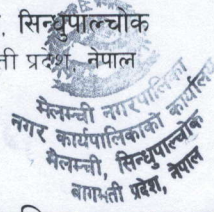 , सिन्धुपाल्चोक
ती प्रदेश, नेपाल
मेलम्ची नगरपालिका
नगर कार्यपालिकाको कार्यालय
मेलम्ची, सिन्धुपाल्चोक
बागमती प्रदेश, नेपाल